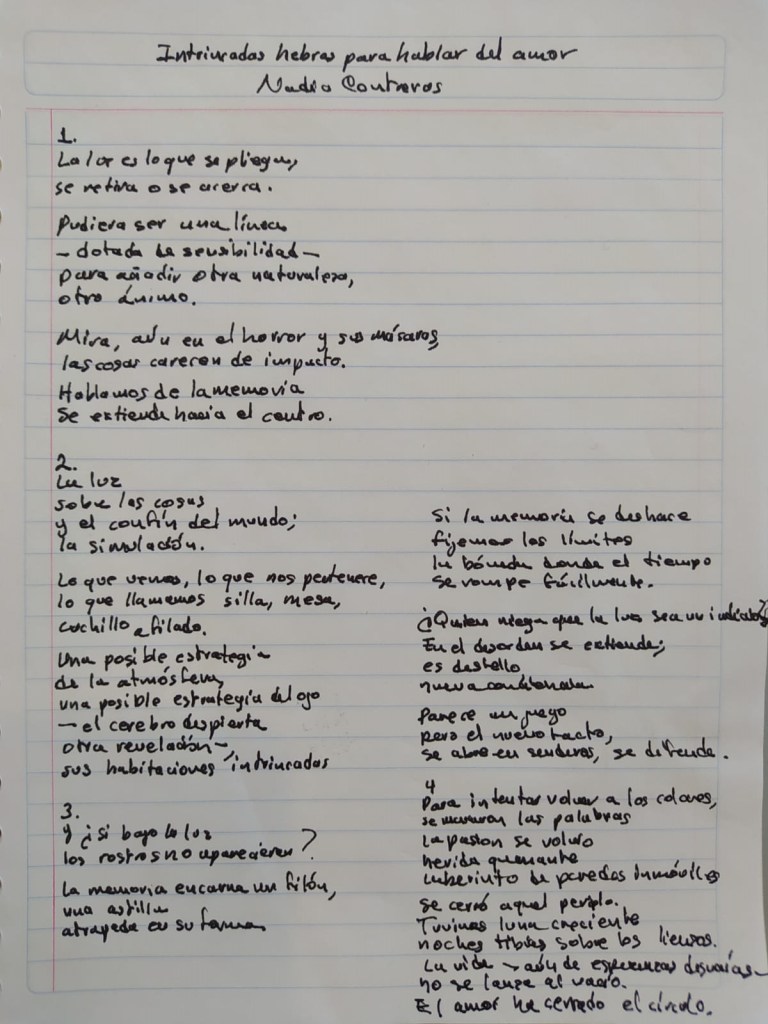 Intrincadas hebras para hablar del amor
Nadia Contreras
1.
La luz es lo que se pliega,
se retira o se acerca.
Pudiera ser una línea
– dotada de sensibilidad –
para añadir otra naturaleza,
otro ánimo.
Mira, aún en el horror y sus máscaras,
las cosas carecen de impacto.
Hablamos de la memoria
Se extiende hacia el centro.
2.
La luz
sobre las cosas
y el confín del mundo;
la simulación.
Lo que vemos, lo que nos pertenece,
lo que llamamos silla, mesa,
cuchillo afilado.
Una posible estrategia
de la atmósfera,
una posible estrategia del ojo
– el cerebro despierta
otra revelación –
sus habitaciones intrincadas
3.
Y ¿si bajo la luz
los rostros no aparecieran?
La memoria encarna un filón,
una astilla
atrapada en su forma
Si la memoria se deshace
fijemos los límites
la bóveda donde el tiempo
se rompe fácilmente.
¿Quien niega que la luz sea un indicio?
En el desorden se extiende;
es destello
nueva
Parece un juego
pero el nuevo tacto,
se abre en senderos, se difunde.
4
Para intentar volver a los colores,
se murmuran las palabras
La pasión se volvió
herida quemante
laberinto de paredes inmóviles
se cerró aquel periplo.
Tuvimos luna creciente
noches tibias sobre los lienzos.
La vida – aún de esperanzas –
no se lanza al vacío.
El amor ha cerrado el círculo.